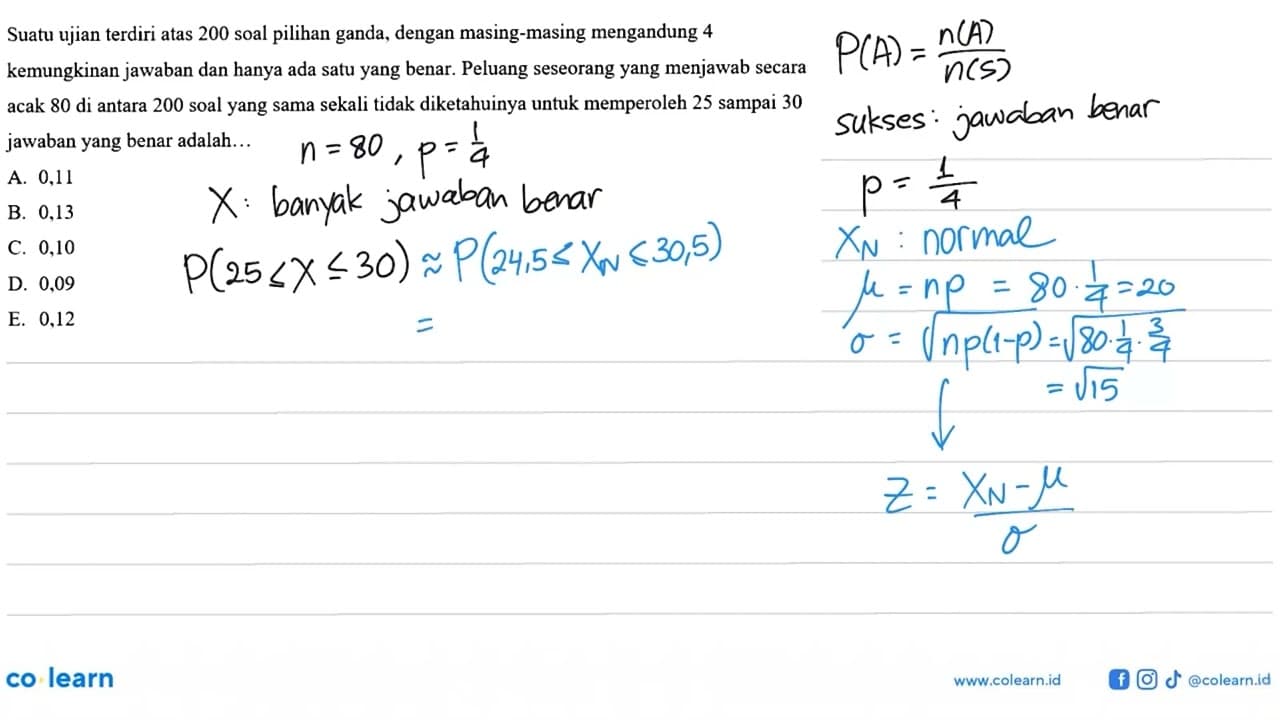 Suatu ujian terdiri atas 200 soal pilihan ganda, dengan masing-masing mengandung 4
kemungkinan jawaban dan hanya ada satu yang benar. Peluang seseorang yang menjawab secara
acak 80 di antara 200 soal yang sama sekali tidak diketahuinya untuk memperoleh 25 sampai 30
jawaban yang benar adalah...
A. 0,11
B. 0,13
C. 0,10
D. 0,09
E. 0,12
n = 80, p = 1/4
X: banyak jawaban benar
P(25 ≤ X ≤ 30) ≈ P(24,5 ≤ X_N ≤ 30,5)
=
P(A) = n(A)/n(S)
sukses: jawaban benar
p = 1/4
X_N : normal
μ = np = 80 · 1/4 = 20
σ = √np(1-p) = √80 · 1/4 · 3/4
= √15
↓
Z = X_N - μ / σ
co learn
www.colearn.id
@colearn.id